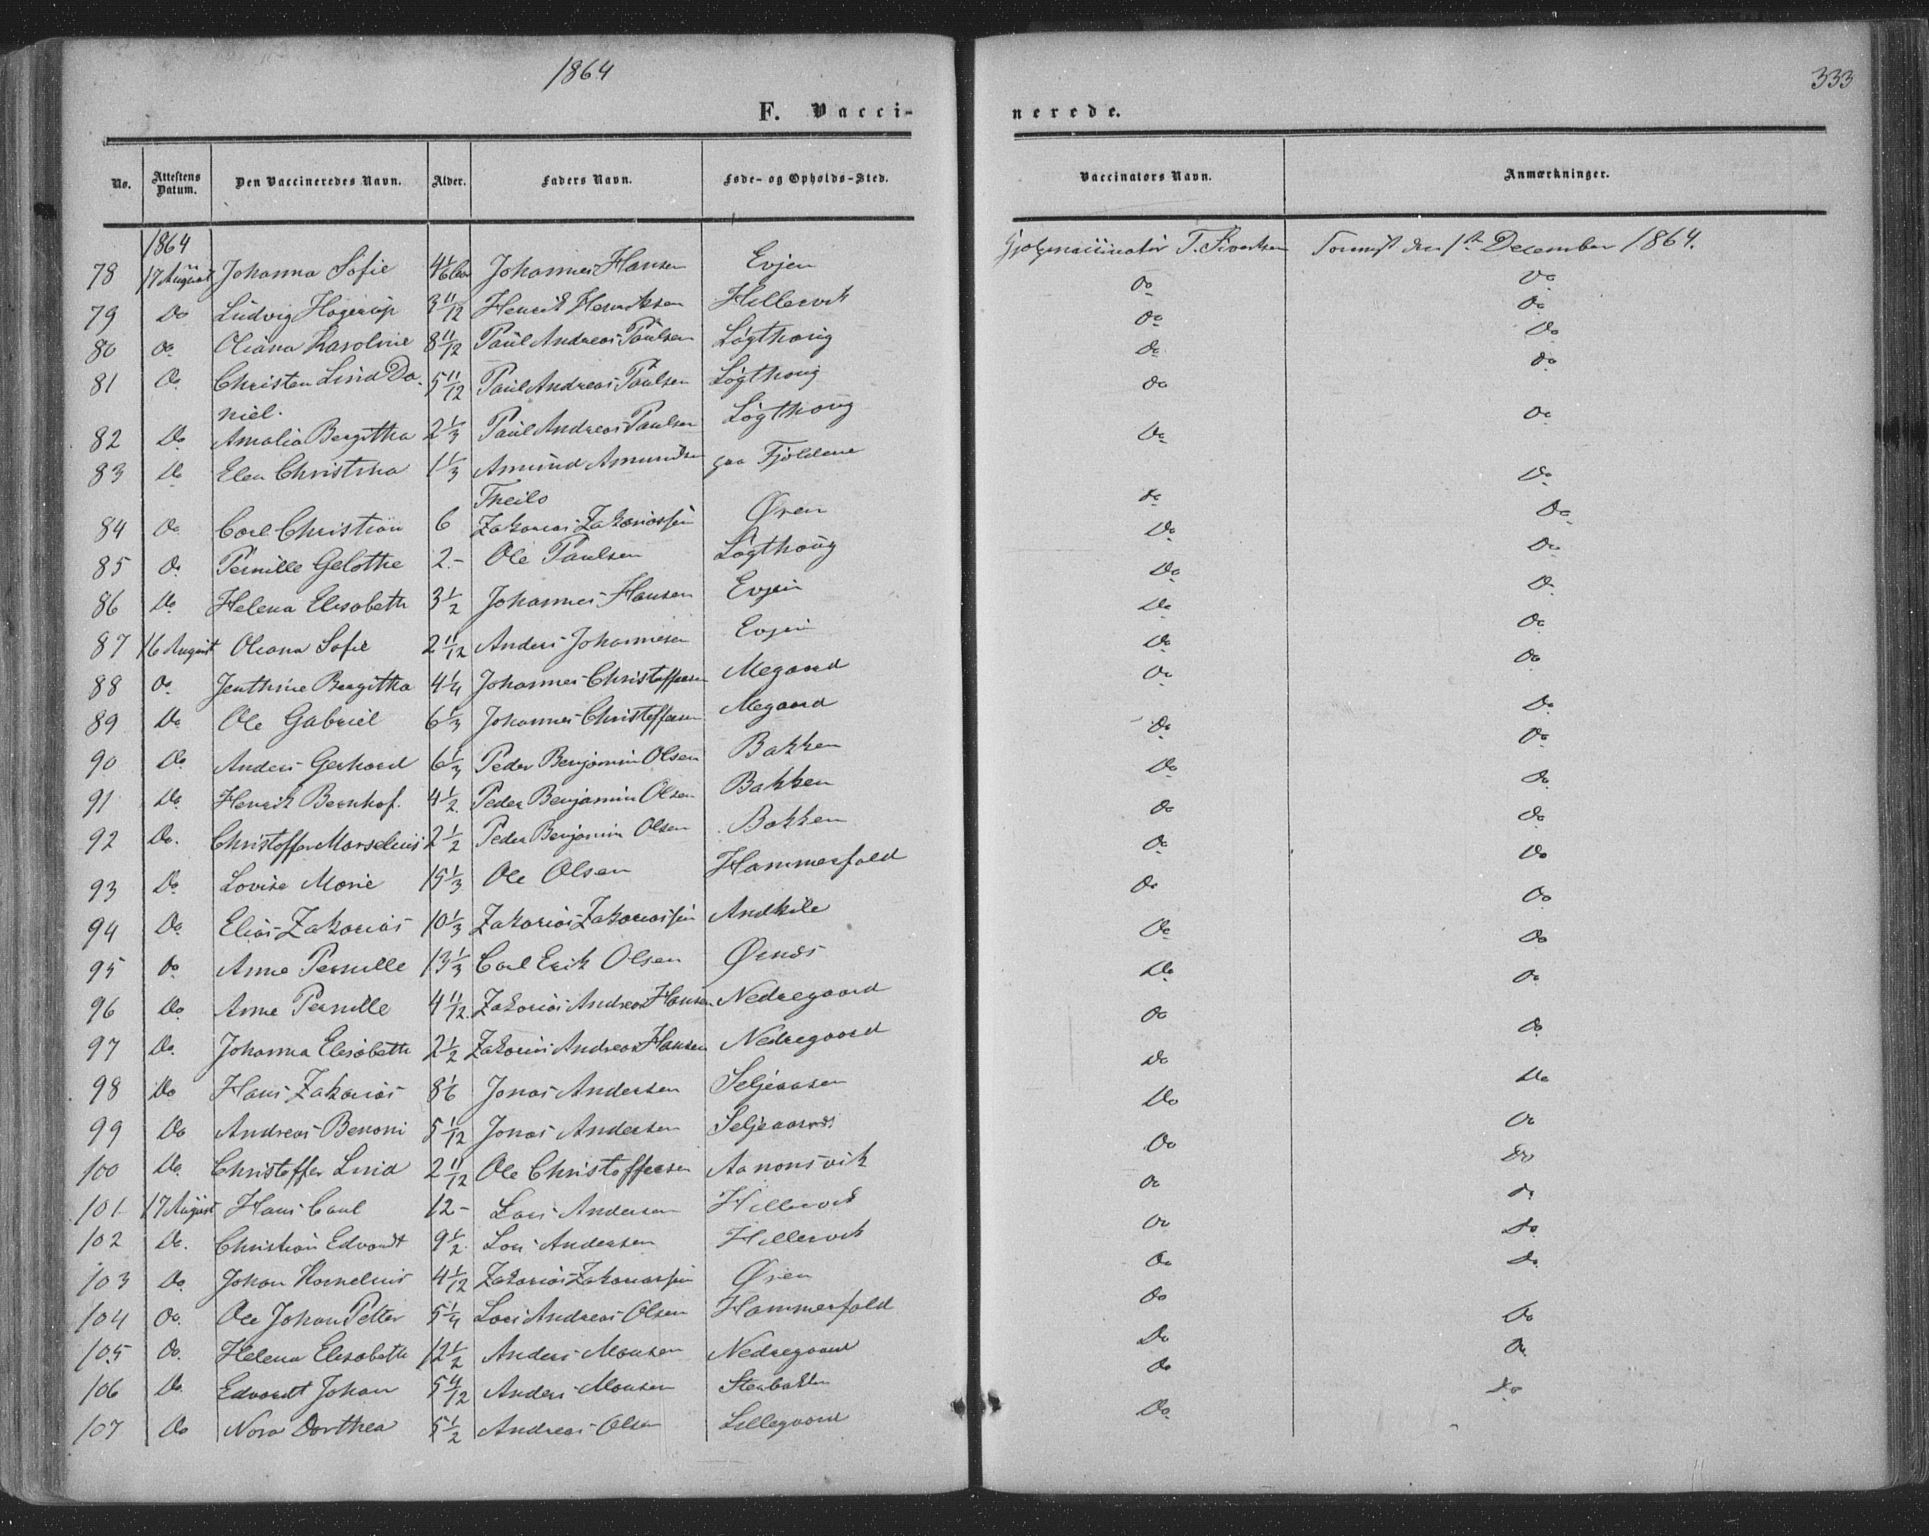 1864
333
F. Vacci-
nerede.
No. Attestens Datum. Den Vaccineredes Navn. Alder. Faders Navn. Føde- og Opholds-Sted. Vaccinators Navn. Anmærkninger.
1864
78 17 August Johanna Sofie 4 1/6 Johannes Hansen Evjen T. Sivertsen den 1ste December 1864.
79 Do Ludvig Hagerup 3 11/12 Henrik Henriksen Hillervik Do Do
80 Do Oliana Karoline 8 11/12 Paul Andreas Paulsen Løgthoug Do Do
81 Do Christen Lind Da- 5 11/12 Paul Andreas Paulsen Løgthoug Do Do
niel.
82 Do Amalia Bergitha 2 1/3 Paul Andreas Paulsen Løgthoug Do Do
83 Do Elen Christina 1 1/3 Amund Amundsen paa Fjeldene Do Do
Theilo
84 Do Carl Christian 6 Zakarias Zakariassen Øren Do Do
85 Do Pernille Gelothe 2.- Ole Paulsen Løgthoug Do Do
86 Do Helena Elisabeth 3 1/2 Johannes Hansen Evjen Do Do
87 16 August Oliana Sofie 2 11/12 Anders Johannesen Evjen Do Do
88 Do Jenthine Bergitha 4 1/4 Johannes Christoffersen Megaard Do Do
89 Do Ole Gabriel 6 1/3 Johannes Christoffersen Megaard Do Do
90 Do Anders Gerhard 6 1/3 Peder Benjamin Olsen Bakken Do Do
91 Do Henrik Bernhof. 4 1/2 Peder Benjamin Olsen Bakken Do Do
92 Do. Christoffer Marselius 2 1/2 Peder Benjamin Olsen Bakken Do Do
93 Do Lovise Marie 15 1/3 Ole Olsen Hammerfald Do Do
94 Do Elias Zakarias 10 1/3 Zakarias Zakariassen Andkile Do Do
95 Do Anne Pernille 13 1/3 Carl Erik Olsen Ørnes Do Do
96 Do Anne Pernille 4 11/12 Zakarias Andreas Hansen Nedregaard Do Do
97 Do. Johanna Elisabeth 2 1/2 Zakarias Andreas Hansen Nedregaard Do Do
98 Do Hans Zakarias 8 1/6 Jonas Andersen Seljeaasen Do Do
99 Do Andreas Benoni 5 1/12 Jonas Andersen Do Do
100 Do. Christoffer Lind 2 11/12 Ole Christoffersen Aanonsvik Do Do
101 17 August Hans Carl 12 - Lars Andersen Hillervik Do Do
102 Do. Christian Edvardt 9 1/2 Lars Andersen Hillervik Do Do
103 Do Johan Kornelius 4 1/12 Zakarias Zakariassen Øren Do Do
104 Do. Ole Johan Petter 5 1/4 Lars Andreas Olsen Hammerfald Do Do
105 Do. Helena Elisabeth 12 1/2 Anders Monsen Nedregaard Do Do
106 Do Edvardt Johan Anders Monsen Stenbakken Do Do
107 Do Nora Dorthea 5 1/2 Andreas Olsen Lillegaard Do